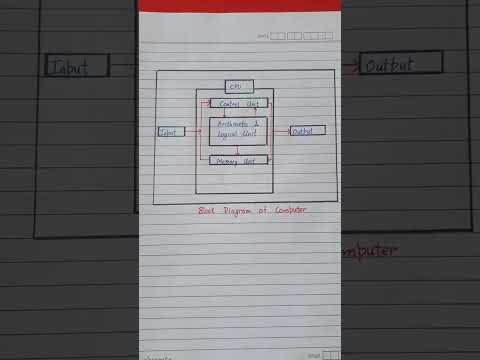 DATE
CPU
Control Unit
Input
Arithmetic &
Logical Unit
Output
Memory Unit
Block Diagram of Computer
Input
Output
mputer